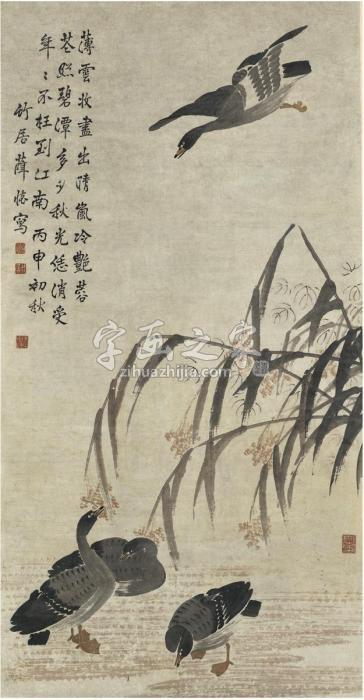 薄雲收盡出晴嵐冷艷蓉
花照碧潭多少秋光恁消受
年〻不枉到江南丙申初秋
竹居薛怀寫
字画之家
zihuazhijia.com